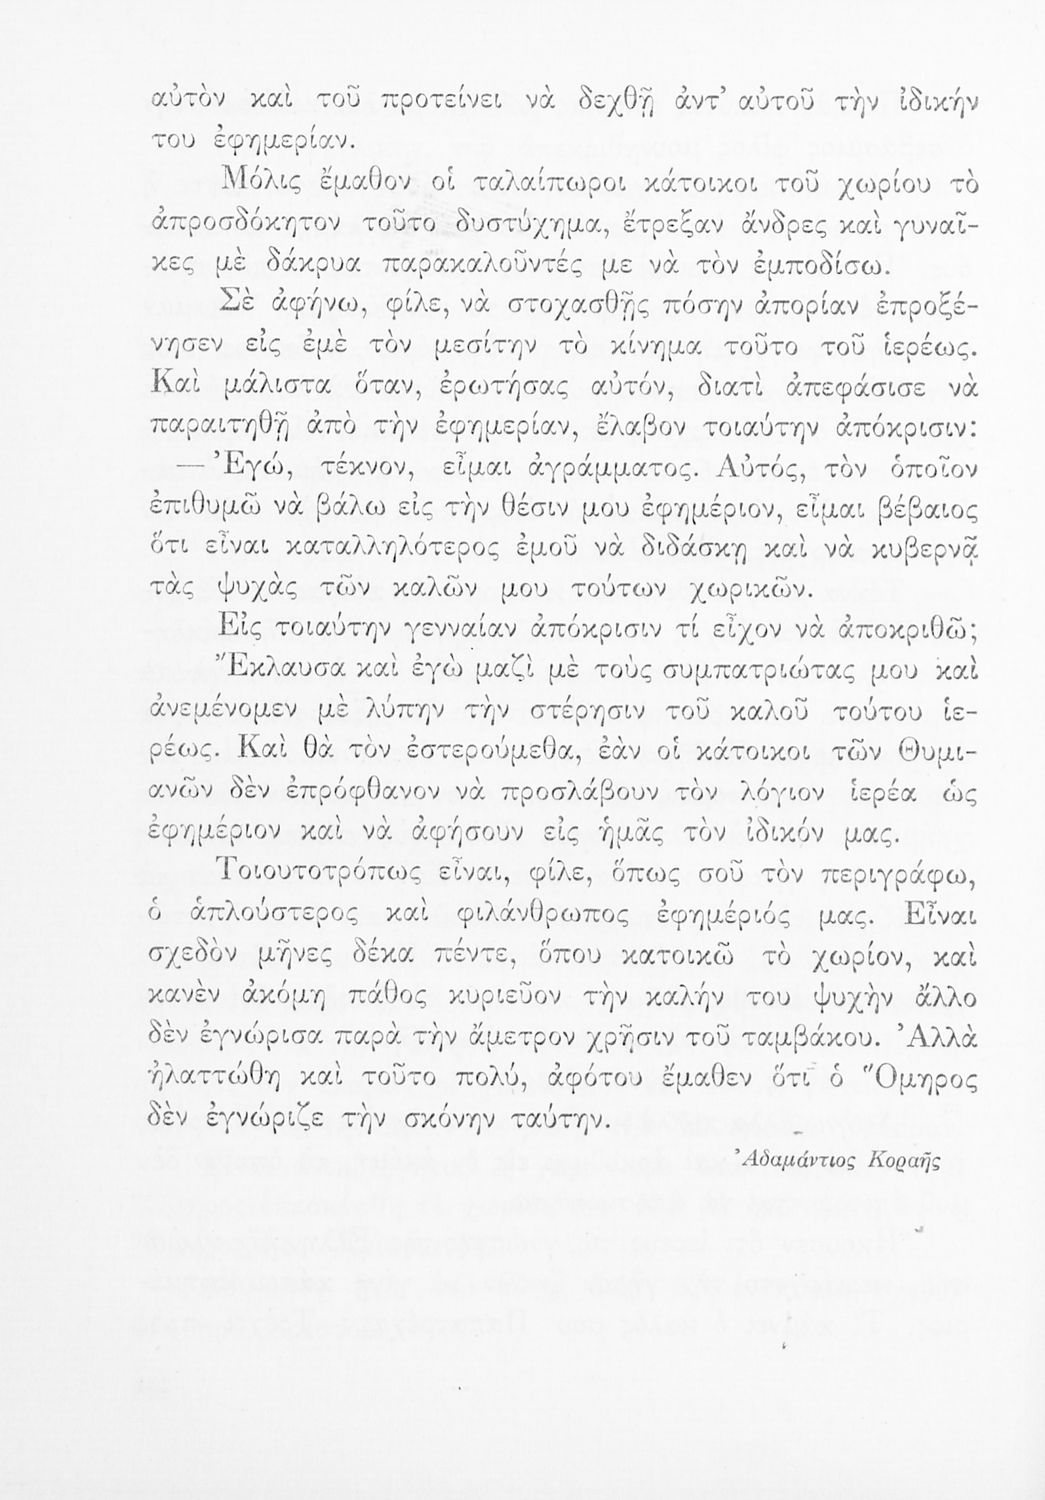 αὐτὸν καὶ τοῦ προτείνει νὰ δεχθῇ ἀντ’ αὐτοῦ τὴν ἰδικήν
του ἐφημερίαν.
Μόλις ἔμαθον οἱ ταλαίπωροι κάτοικοι τοῦ χωρίου τὸ
ἀπροσδόκητον τοῦτο δυστύχημα, ἔτρεξαν ἄνδρες καὶ γυναῖ-
κες μὲ δάκρυα παρακαλοῦντές με νὰ τὸν ἐμποδίσω.
Σὲ ἀφήνω, φίλε, νὰ στοχασθῇς πόσην ἀπορίαν ἐπροξέ-
νησεν εἰς ἐμὲ τὸν μεσίτην τὸ κίνημα τοῦτο τοῦ ἱερέως.
Καὶ μάλιστα ὅταν, ἐρωτήσας αὐτόν, διατὶ ἀπεφάσισε νὰ
παραιτηθῇ ἀπὸ τὴν ἐφημερίαν, ἔλαβον τοιαύτην ἀπόκρισιν:
— Ἐγώ, τέκνον, εἶμαι ἀγράμματος. Αὐτός, τὸν ὁποῖον
ἐπιθυμῶ νὰ βάλω εἰς τὴν θέσιν μου ἐφημέριον, εἶμαι βέβαιος
ὅτι εἶναι καταλληλότερος ἐμοῦ νὰ διδάσκῃ καὶ νὰ κυβερνᾷ
τὰς ψυχὰς τῶν καλῶν μου τούτων χωρικῶν.
Εἰς τοιαύτην γενναίαν ἀπόκρισιν τί εἶχον νὰ ἀποκριθῶ;
Ἔκλαυσα καὶ ἐγὼ μαζὶ μὲ τοὺς συμπατριώτας μου καὶ
ἀνεμένομεν μὲ λύπην τὴν στέρησιν τοῦ καλοῦ τούτου ἱε-
ρέως. Καὶ θὰ τὸν ἐστερούμεθα, ἐὰν οἱ κάτοικοι τῶν Θυμι-
ανῶν δὲν ἐπρόφθανον νὰ προσλάβουν τὸν λόγιον ἱερέα ὡς
ἐφημέριον καὶ νὰ ἀφήσουν εἰς ἡμᾶς τὸν ἰδικόν μας.
Τοιουτοτρόπως εἶναι, φίλε, ὅπως σοῦ τὸν περιγράφω,
ὁ ἁπλούστερος καὶ φιλάνθρωπος ἐφημέριός μας. Εἶναι
σχεδὸν μῆνες δέκα πέντε, ὅπου κατοικῶ τὸ χωρίον, καὶ
κανὲν ἀκόμη πάθος κυριεῦον τὴν καλήν του ψυχὴν ἄλλο
δὲν ἐγνώρισα παρὰ τὴν ἄμετρον χρῆσιν τοῦ ταμβάκου. Ἀλλὰ
ἠλαττώθη καὶ τοῦτο πολύ, ἀφότου ἔμαθεν ὅτι ὁ Ὅμηρος
δὲν ἐγνώριζε τὴν σκόνην ταύτην.
Ἀδαμάντιος Κοραῆς